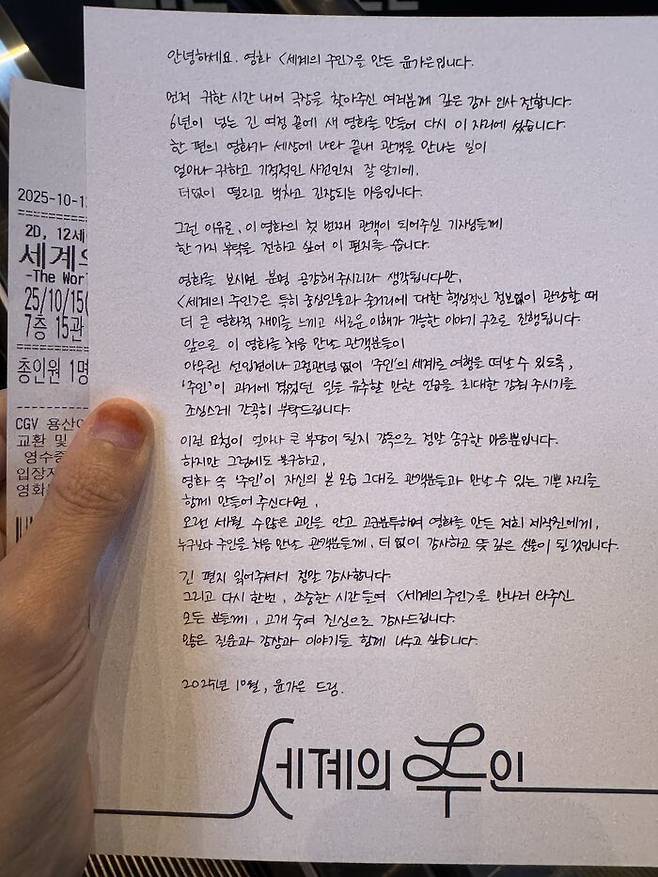 안녕하세요. 영화 <세계의 주인>을 만든 윤가은입니다.
먼저 귀한 시간 내어 극장을 찾아주신 여러분께 깊은 감사 인사 전합니다.
6년이 넘는 긴 여정 끝에 새 영화를 만들어 다시 이 자리에 섰습니다.
한 편의 영화가 세상에 나와 끝내 관객을 만나는 일이
얼마나 귀하고 기적적인 사건인지 잘 알기에,
더없이 떨리고 벅차고 긴장되는 마음입니다.
그런 이유로, 이 영화의 첫 번째 관객이 되어주실 기자님들께
한 가지 부탁을 전하고 싶어 이 편지를 씁니다.
영화를 보시면 분명 공감해주시리라 생각됩니다만,
<세계의 주인>은 특히 중심인물과 줄거리에 대한 핵심적인 정보없이 관람할 때
더 큰 영화적 재미를 느끼고 새로운 이해가 가능한 이야기 구조로 진행됩니다.
앞으로 이 영화를 처음 만날 관객분들이
아무런 선입견이나 고정관념 없이 '주인'의 세계로 여행을 떠날 수 있도록,
'주인'이 과거에 겪었던 일을 유추할 만한 언급을 최대한 감춰 주시기를
조심스레 간곡히 부탁드립니다.
이런 요청이 얼마나 큰 부담이 될지 감독으로 정말 송구한 마음뿐입니다.
하지만 그럼에도 불구하고,
영화 속 '주인'이 자신의 본 모습 그대로 관객분들과 만날 수 있는 기쁜 자리를
함께 만들어 주신다면,
오랜 세월 수많은 고민을 안고 고군분투하며 영화를 만든 저희 제작진에게,
누구보다 주인을 처음 만날 관객분들께, 더 없이 감사하고 뜻 깊은 선물이 될 것입니다.
긴 편지 읽어주셔서 정말 감사합니다.
그리고 다시 한번, 소중한 시간 들여 <세계의 주인>을 만나러 와주신
모든 분들께, 고개 숙여 진심으로 감사드립니다.
많은 질문과 감상과 이야기들 함께 나누고 싶습니다.
2025년 10월, 윤가은 드림.
세계의 주인
2025-10-1
2D, 12세
세계의
-The Wor
25/10/15(
7층 15관
총인원 1명
CGV 용산
교환 및
영수증
입장지
영화